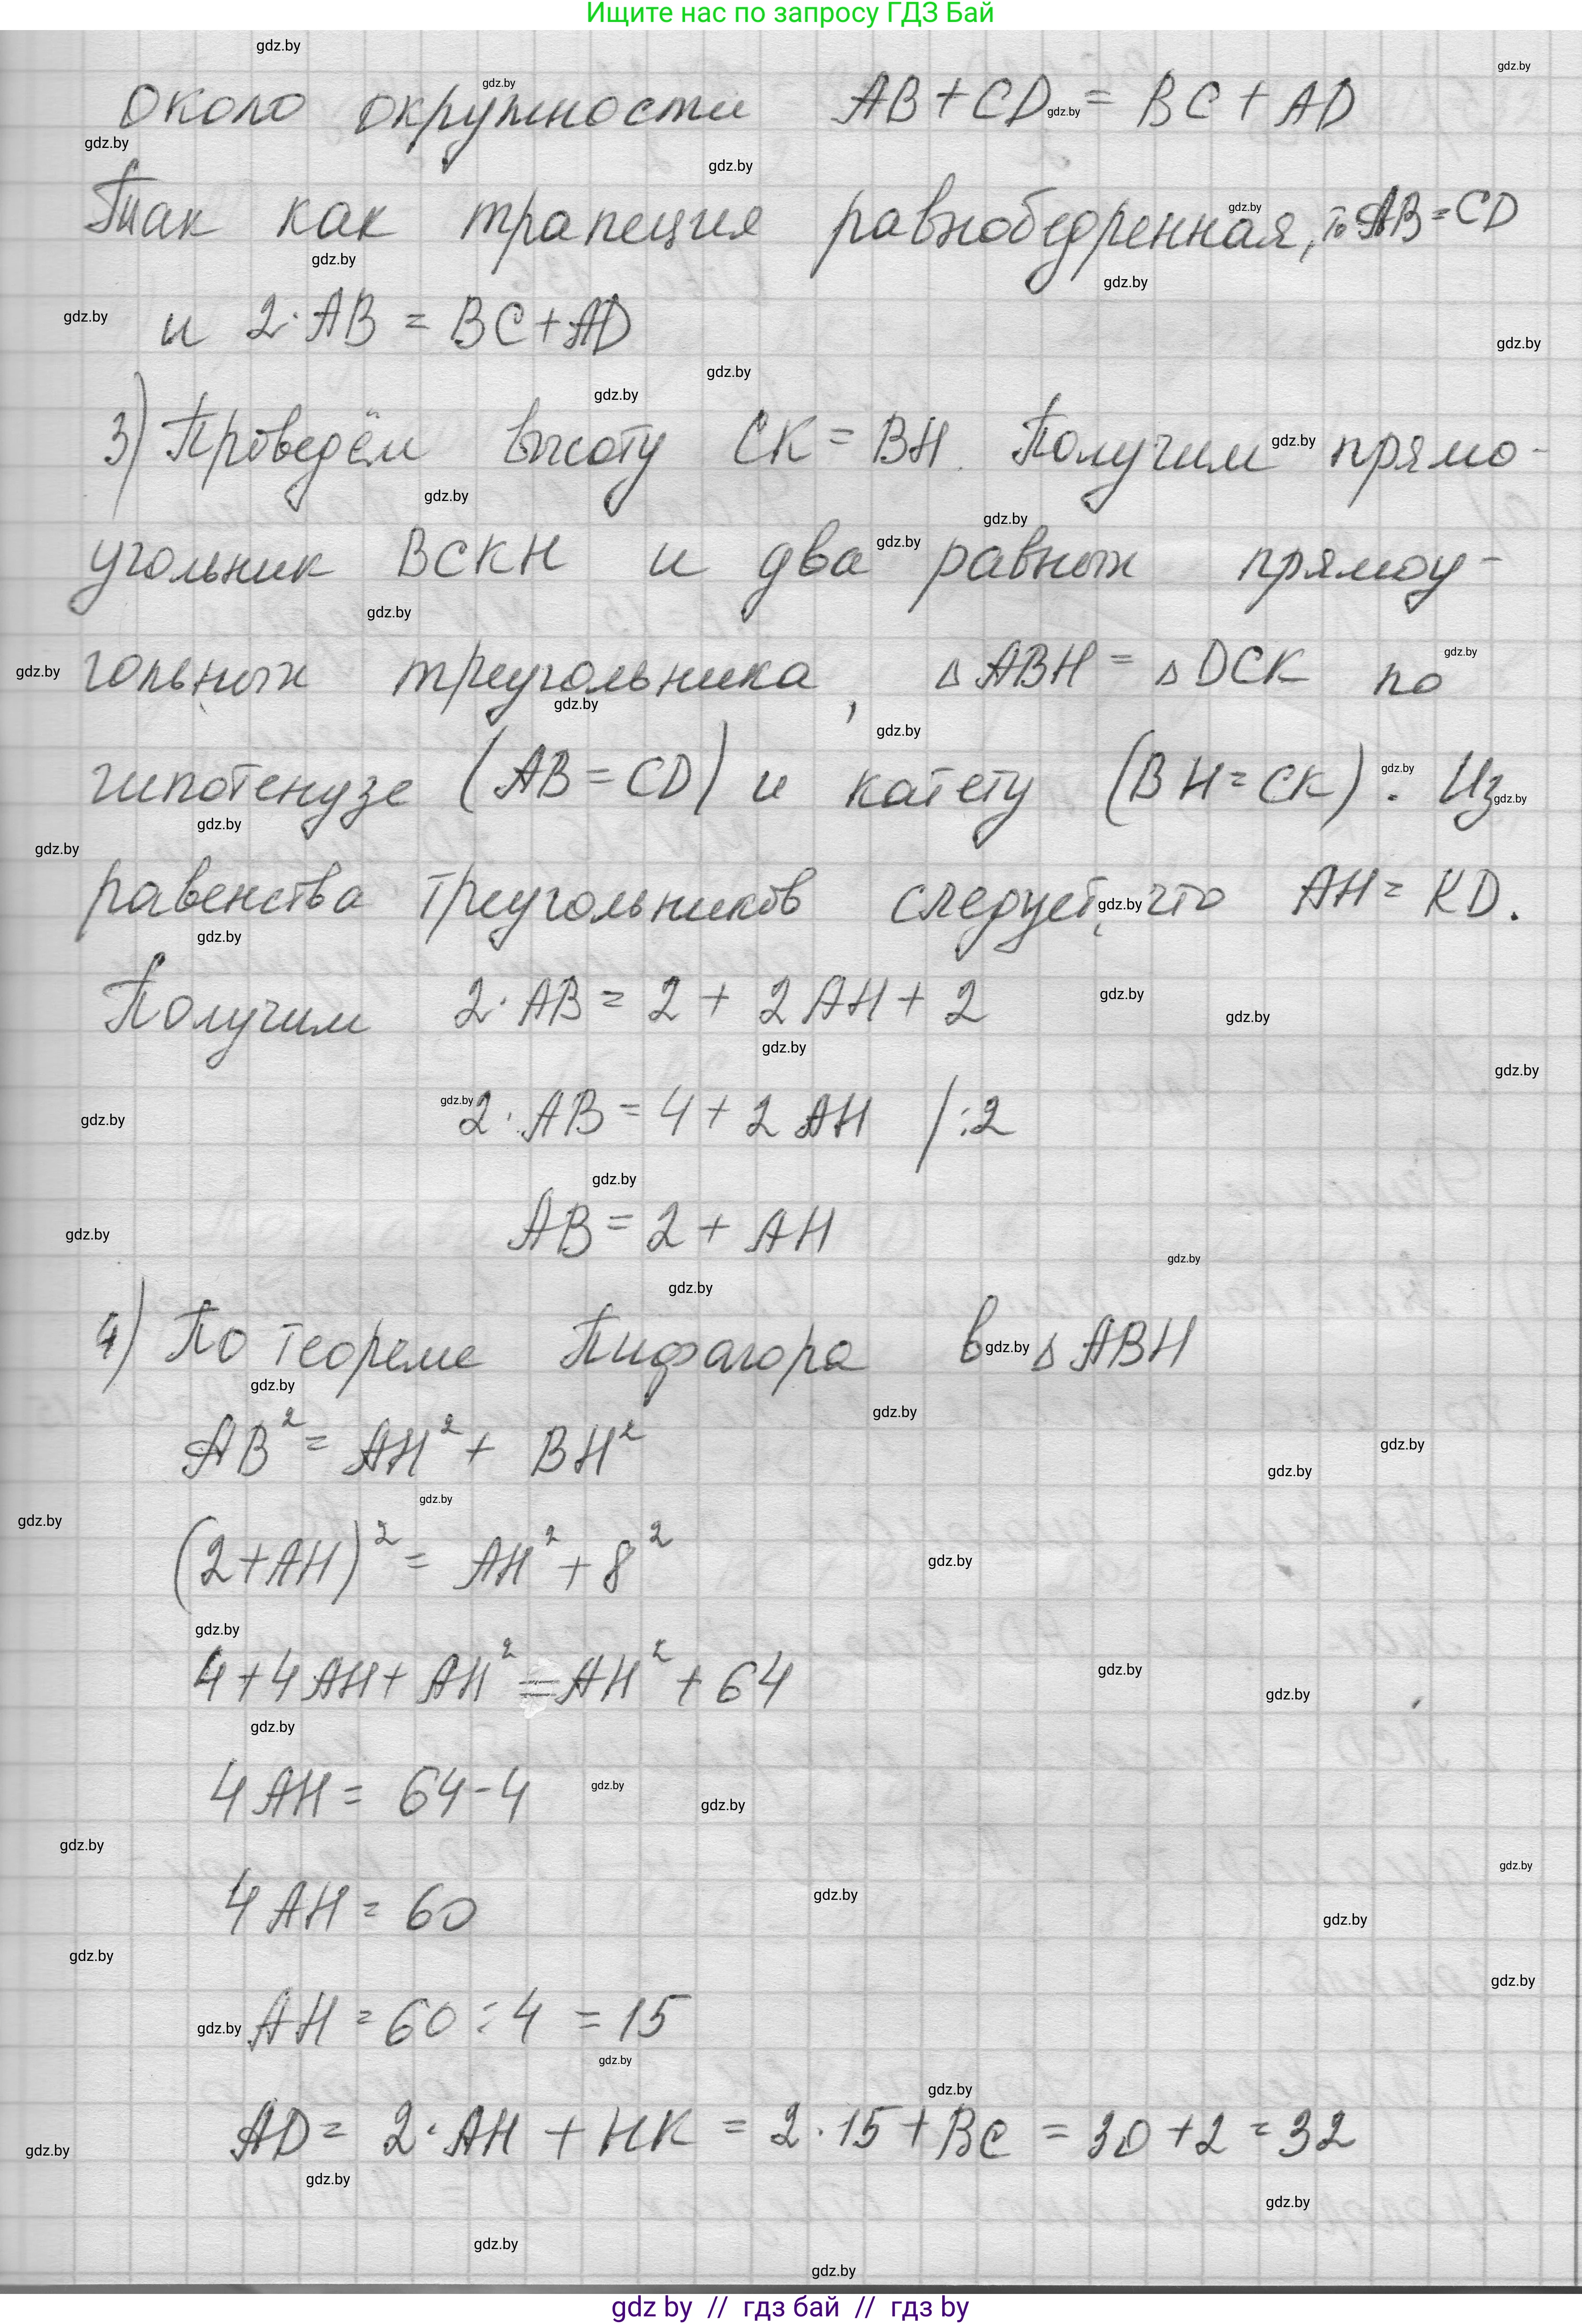 Ищите нас по запросу ГДЗ Бай
около окружности AB + CD = BC + AD
Так как трапеция равнобедренная, то AB = CD
и 2·AB = BC + AD
3) Проведём высоту CK = BH. Получим прямо-
угольник BCKH и два равных прямоу-
гольных треугольника, △ABH = △DCK по
гипотенузе (AB = CD) и катету (BH = CK). Из
равенства треугольников следует, что AH = KD.
Получим 2·AB = 2 + 2AH + 2
2·AB = 4 + 2AH /:2
AB = 2 + AH
4) По теореме Пифагора в △ABH
AB² = AH² + BH²
(2+AH)² = AH² + 8²
4 + 4AH + AH² = AH² + 64
4AH = 64 - 4
4AH = 60
AH = 60 : 4 = 15
AD = 2·AH + HK = 2·15 + BC = 30 + 2 = 32
gdz by // гдз бай // гдз by